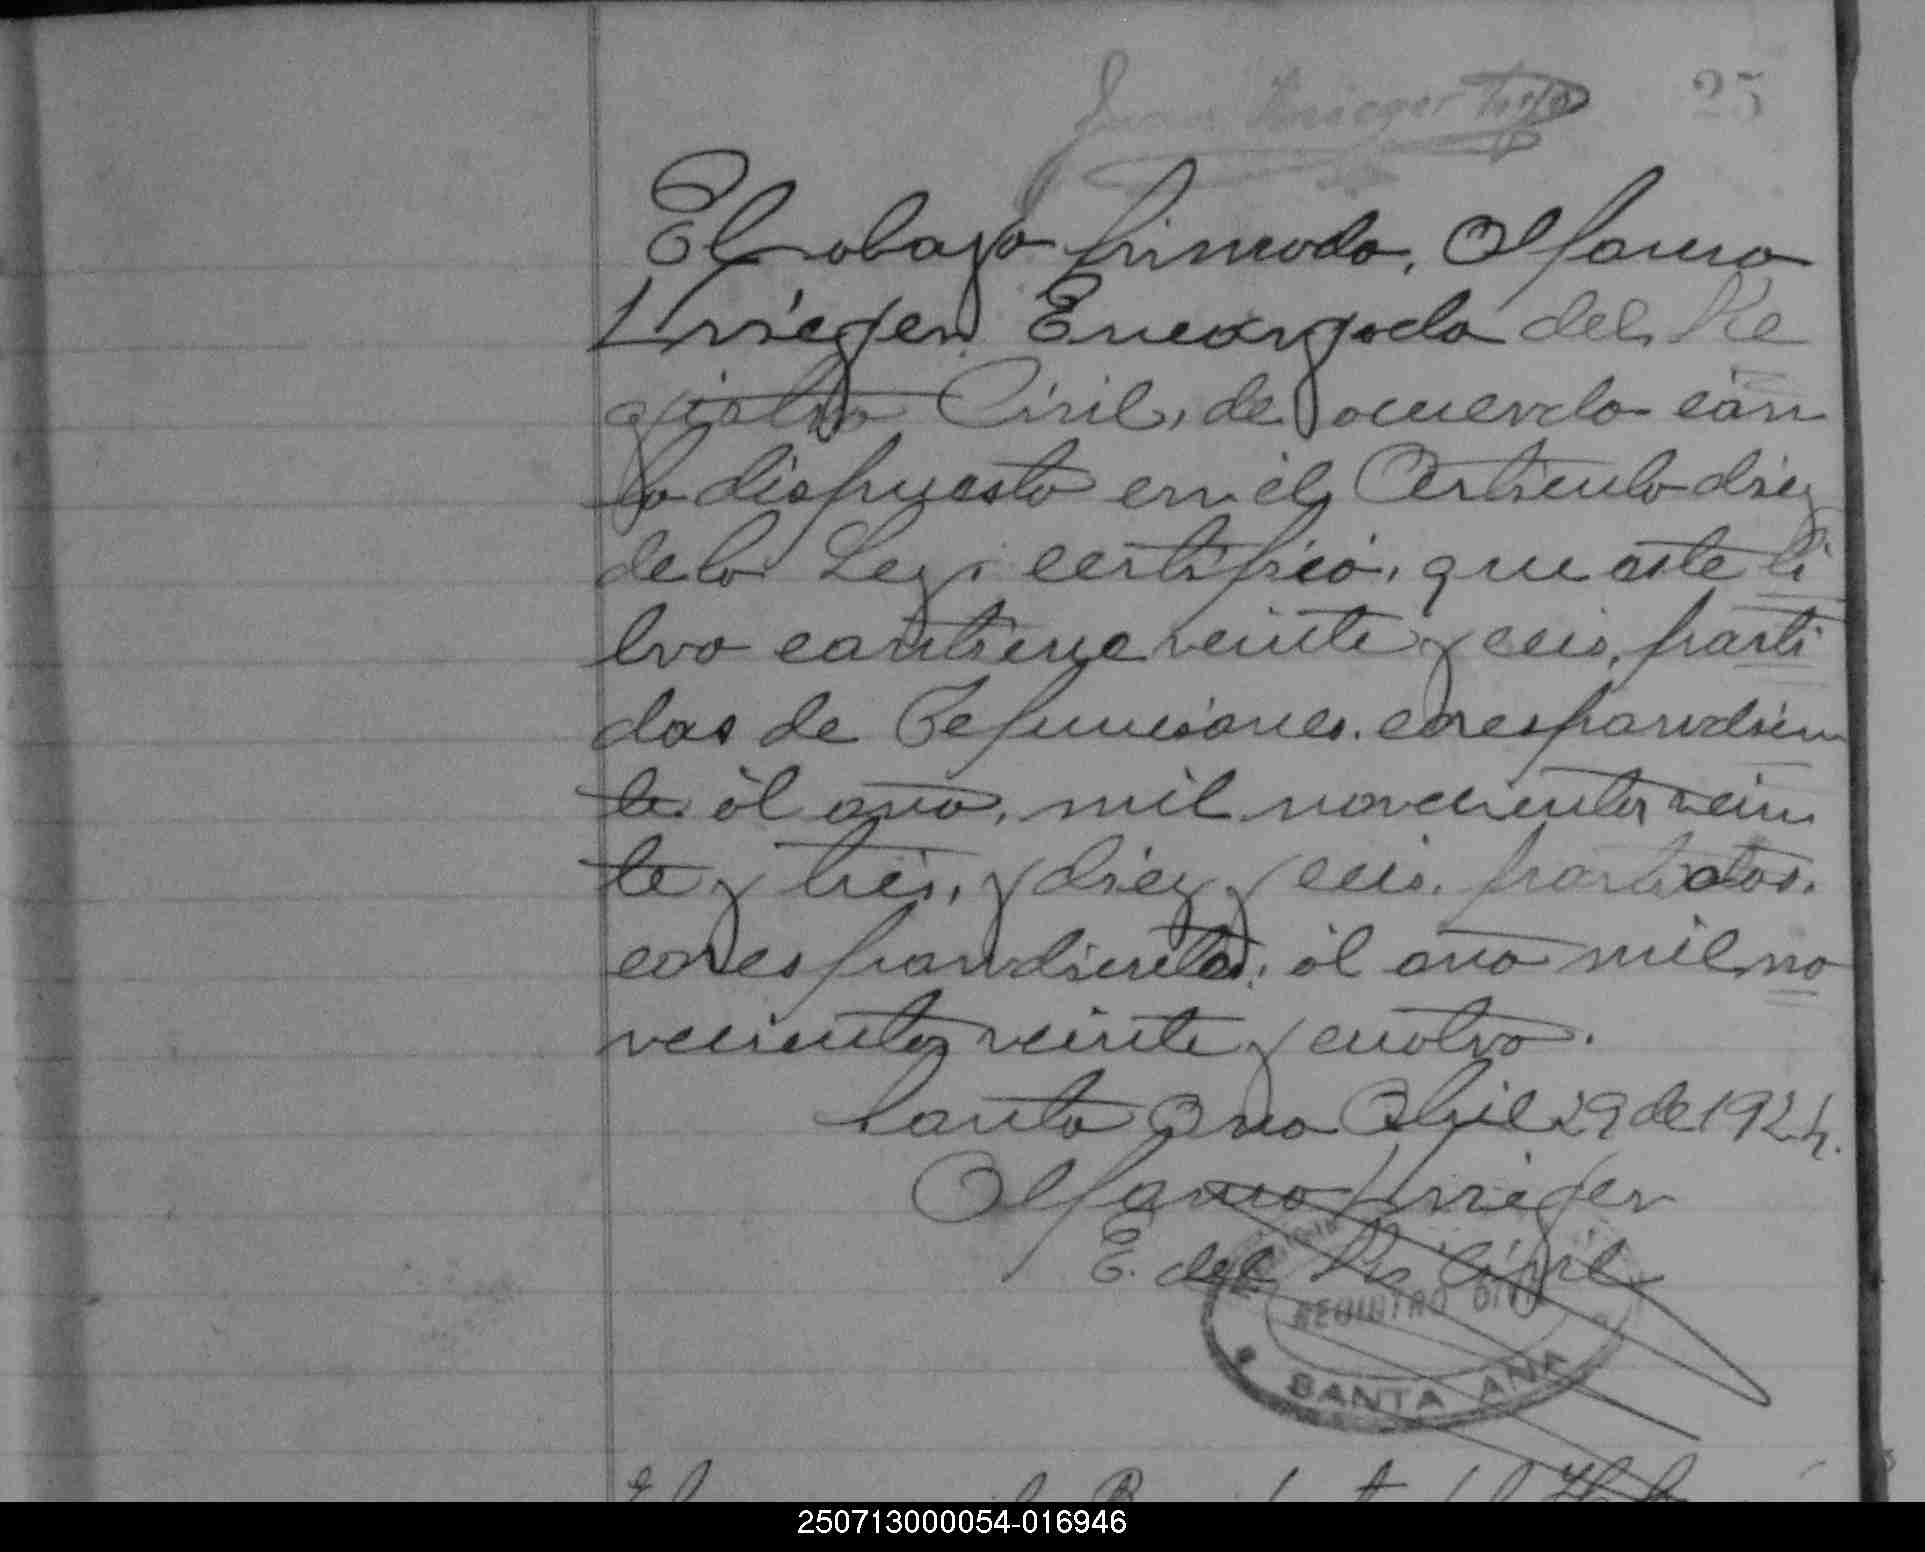 25
El abajo firmado, Alfonso
Krieger Encargado del Re
gistro Civil, de acuerdo con
lo dispuesto en el Articulo diez
de la Ley, certifico, que este li
bro contiene veinte y ceis, parti
das de Defunciones. corespondien
te al año, mil novecientos vein
te y tres, y diez y ceis. partidas.
corespondientes, al año mil no
vecientos veinte y cuatro.
Santa Ana Abril 29 de 1924.
Alfonso Krieger
E. del Rº Civil
REGISTRO CIVIL
SANTA ANA
250713000054-016946